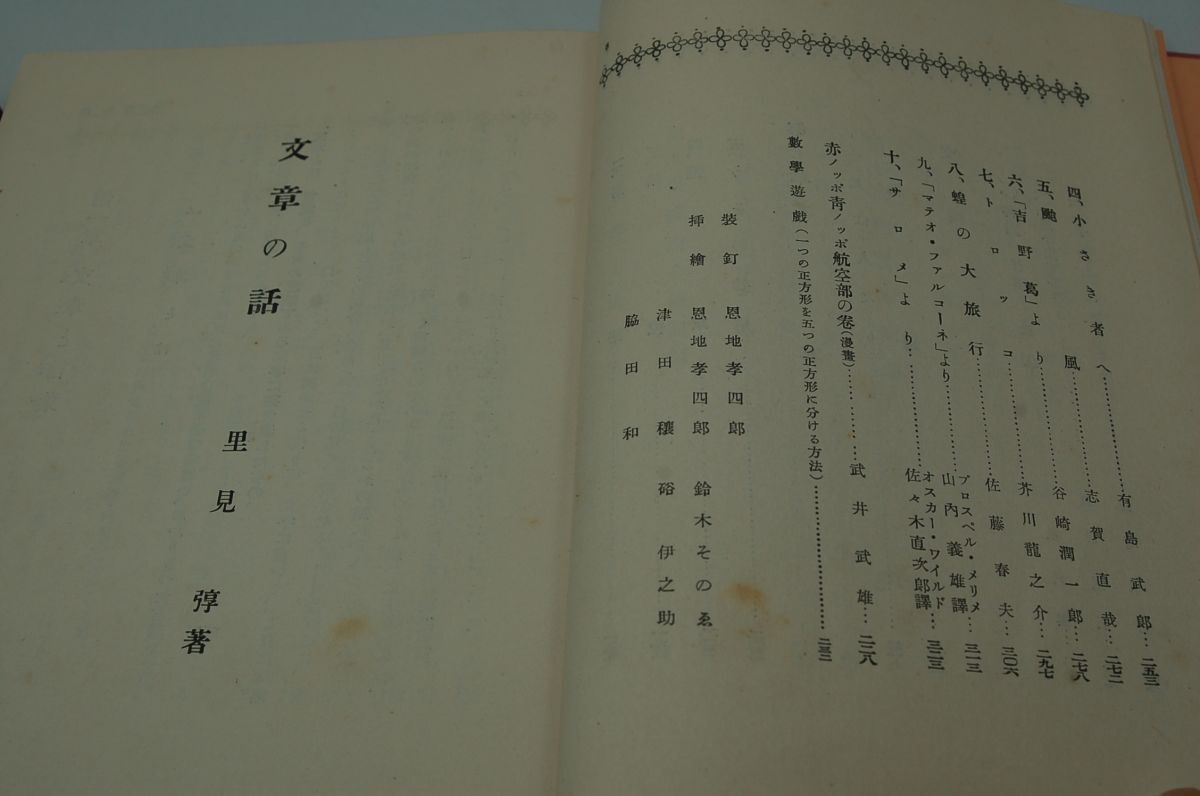 四、小さき者へ……………有島武郎…二五三
五、颱風……………志賀直哉…二七二
六、「吉野葛」より……………谷崎潤一郎…二七八
七、トロッコ……………芥川龍之介…二九七
八、蝗の大旅行……………佐藤春夫…三〇六
九、「マテオ・ファルコーネ」より……………プロスペル・メリメ 山內義雄譯…三一三
十、「サロメ」より……………オスカー・ワイルド 佐々木直次郎譯…三二三
赤ノッポ靑ノッポ航空部の卷(漫畫)………武井武雄…二二八
數學遊戲(一つの正方形を五つの正方形に分ける方法)……………二三二
裝釘 恩地孝四郎
挿繪 恩地孝四郎 鈴木そのゑ
津田穰 硲伊之助
脇田和
文章の話
里見弴著